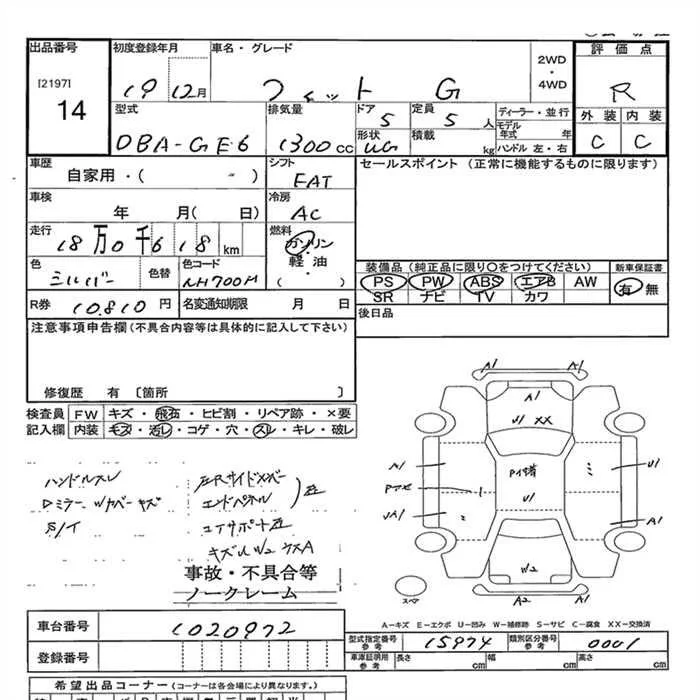 出品番号
[2197]
14
初度登録年月
19 12月
車名・グレード
フィット G
2WD
・
4WD
評価点
R
外装 内装
C C
型式
DBA-GE6
排気量
1300 CC
ドア
5
定員
5 人
形状
UG
積載
kg
ディーラー・並行
モデル年式 年
ハンドル 左・右
車歴
自家用・( 〃 )
シフト
FAT
セールスポイント (正常に機能するものに限ります)
車検
年 月( 日)
冷房
AC
走行
18万0千618 km
燃料
ガソリン
軽・油
・( )
色
シルバー
色替
色コード
NH700M
装備品 (純正品に限り〇をつけてください)
PS PW ABS エアB AW
SR ナビ TV カワ
新車保証書
有 無
R券 10.810 円
名変通知期限 月 日
後日品
注意事項申告欄 (不具合内容等は具体的に記入して下さい)
修復歴 有 〔箇所 〕
検査員記入欄
FW キズ・飛石・ヒビ割・リペア跡・×要
内装 キズ・汚レ・コゲ・穴・スレ・キレ・破レ
ハンドルスレ
エンドパネル
事故・不具合等
ノークレーム
A1 A1
A1
U1 XX
A1
U1
U1
A1
W2
A2 A1
スペア
A－キズ E－エクボ U－凹み W－補修跡 S－サビ C－腐食 XX－交換済
車台番号 1020972
登録番号
型式指定番号 参考 15974
類別区分番号 参考 0001
車庫証明用 参考
長さ cm 幅 cm 高さ cm
希望出品コーナー (コーナーは各会場により異なります。)